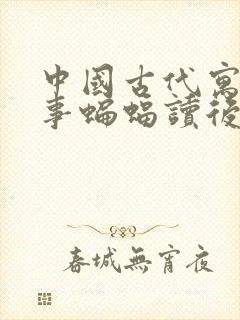 中國古代寓
事蝙蝠讀後
春城無宵夜